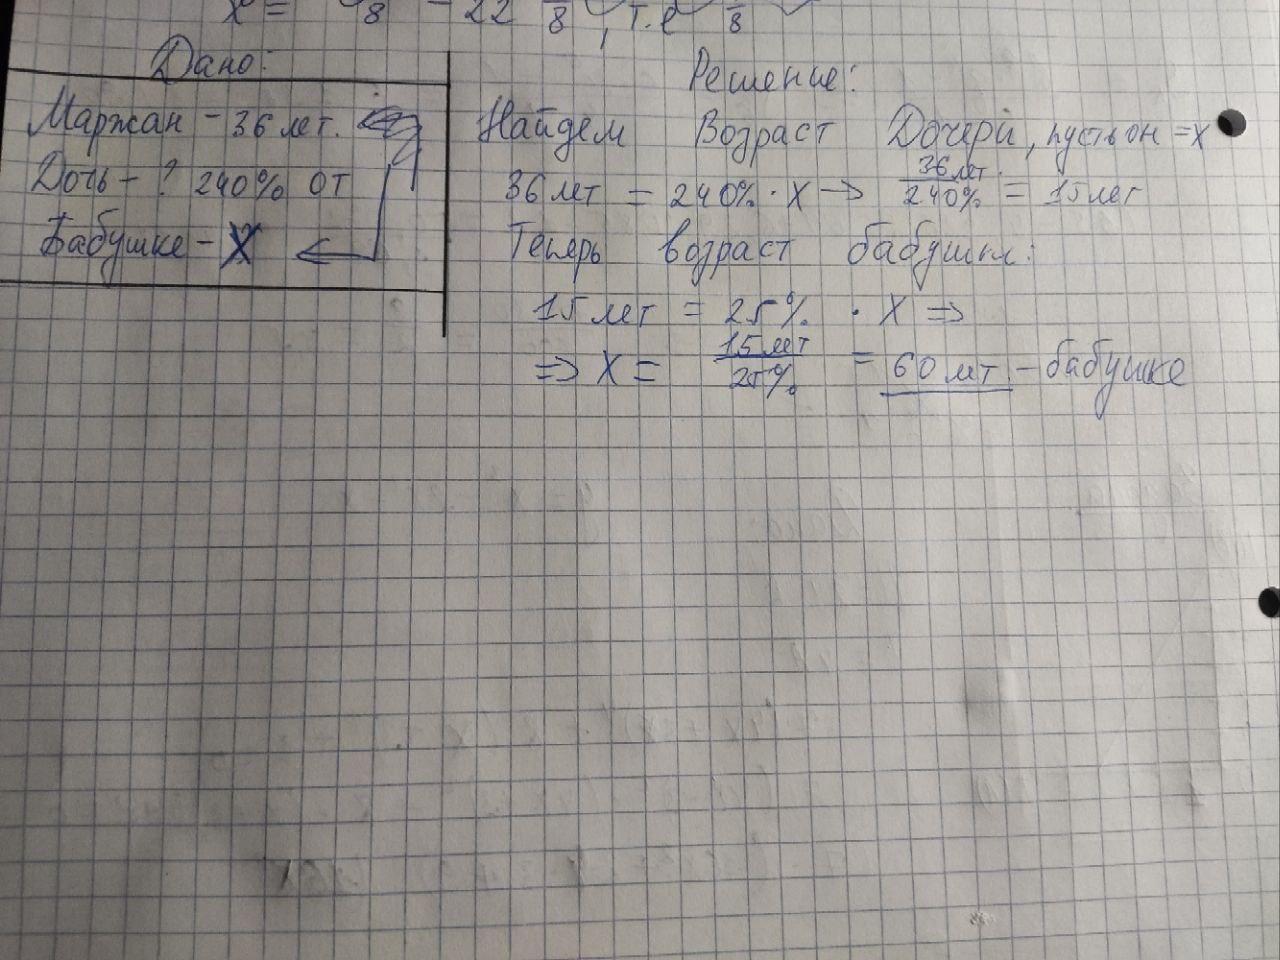 x = 8 - 22 8, т.е 8
Дано:
Маржан - 36 лет.
Дочь - ? 240% от
Бабушке - X
Решение:
Найдем Возраст Дочери, пусть он = x
36 лет = 240% · X → 36 лет / 240% = 15 лет
Теперь возраст бабушки:
15 лет = 25% · X ⇒
⇒ X = 15 лет / 25% = 60 лет - бабушке